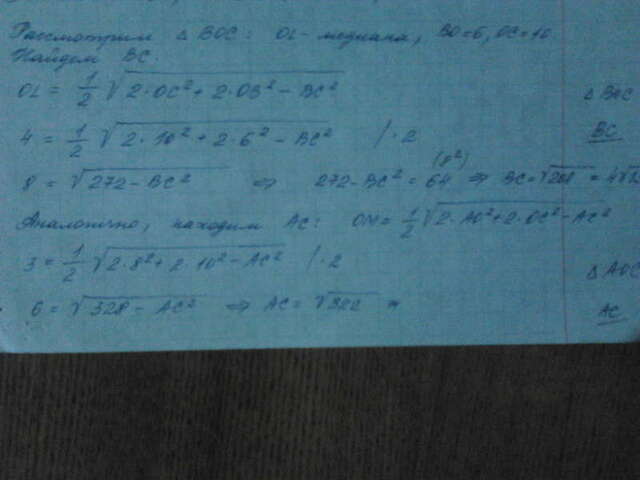 Рассмотрим △ BOC: OL - медиана, BO=6, OC=10
Найдем BC.
OL = 1/2 √(2·OC² + 2·OB² − BC²)
△ BOC
4 = 1/2 √(2·10² + 2·6² − BC²) /·2
BC
8 = √(272 − BC²) ⇒ 272 − BC² = 64 (8²) ⇒ BC = √208 = 4√13
Аналогично, находим AC: OM = 1/2 √(2·AO² + 2·OC² − AC²)
3 = 1/2 √(2·8² + 2·10² − AC²) /·2
△ AOC
6 = √(328 − AC²) ⇒ AC = √322
AC